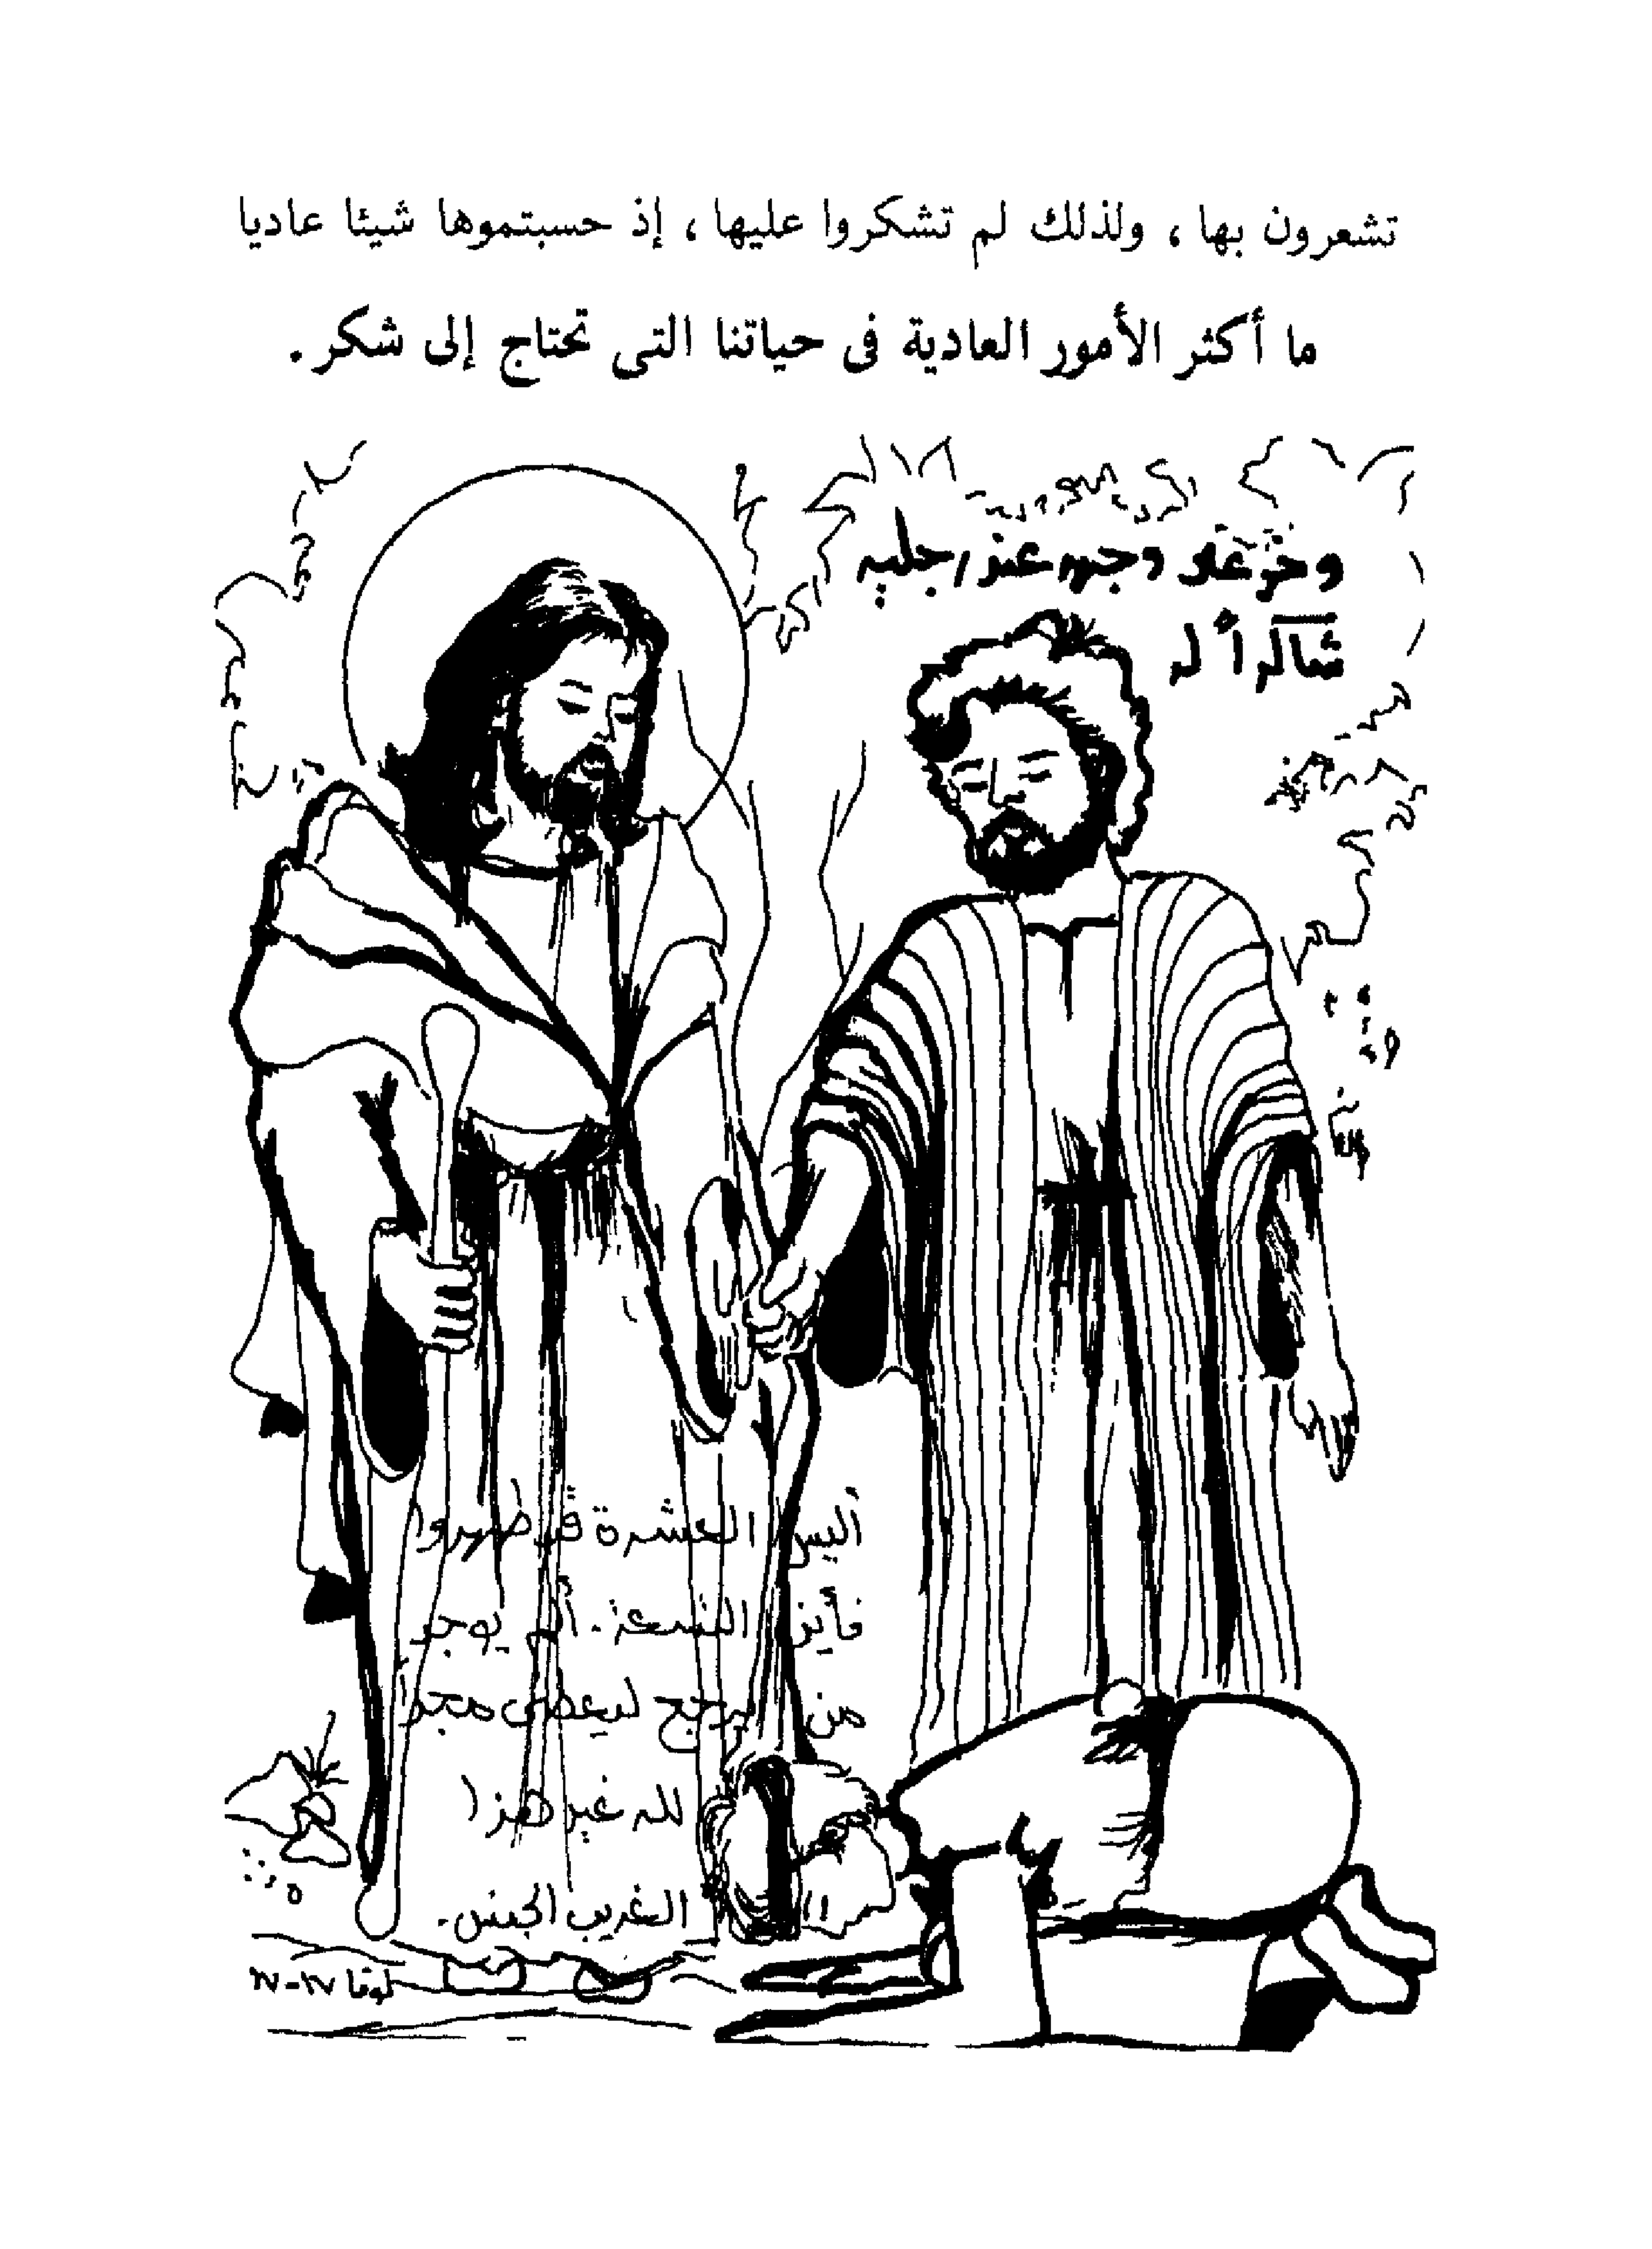 تشعرون بها ، ولذلك لم تشكروا عليها ، إذ حسبتموها شيئا عاديا
ما أكثر الأمور العادية فى حياتنا التى تحتاج إلى شكر .
وخرّ على وجهه عند رجليه
شاكراً له
أليس العشرة قد طهروا
فأين التسعة . ألم يوجد
من يرجع ليعطى مجد
لله غير هذا
الغريب الجنس .
لوقا ١٧ - ١٧